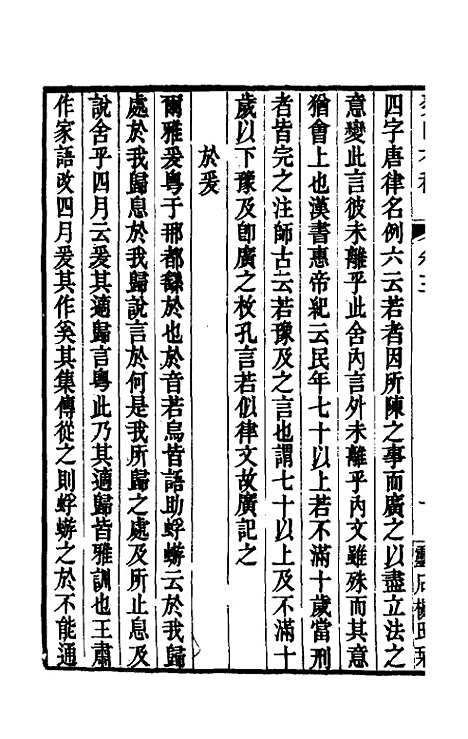 癸巳存稿 卷三 一 靈石楊氏栞
四字唐律名例六云若者因所陳之事而廣之以盡立法之
意變此言彼未離乎此舍內言外未離乎內文雖殊而其意
猶會上也漢書惠帝紀云民年七十以上若不滿十歲當刑
者皆完之注師古云若豫及之言也謂七十以上及不滿十
歲以下豫及卽廣之枚孔言若似律文故廣記之
於爰
爾雅爰粵于那都繇於也於音若烏皆語助蜉蝣云於我歸
處於我歸息於我歸說言於何是我所歸之處及所止息及
說舍乎四月云爰其適歸言粵此乃其適歸皆雅訓也王肅
作家語改四月爰其作奚其集傳從之則蜉蝣之於不能通